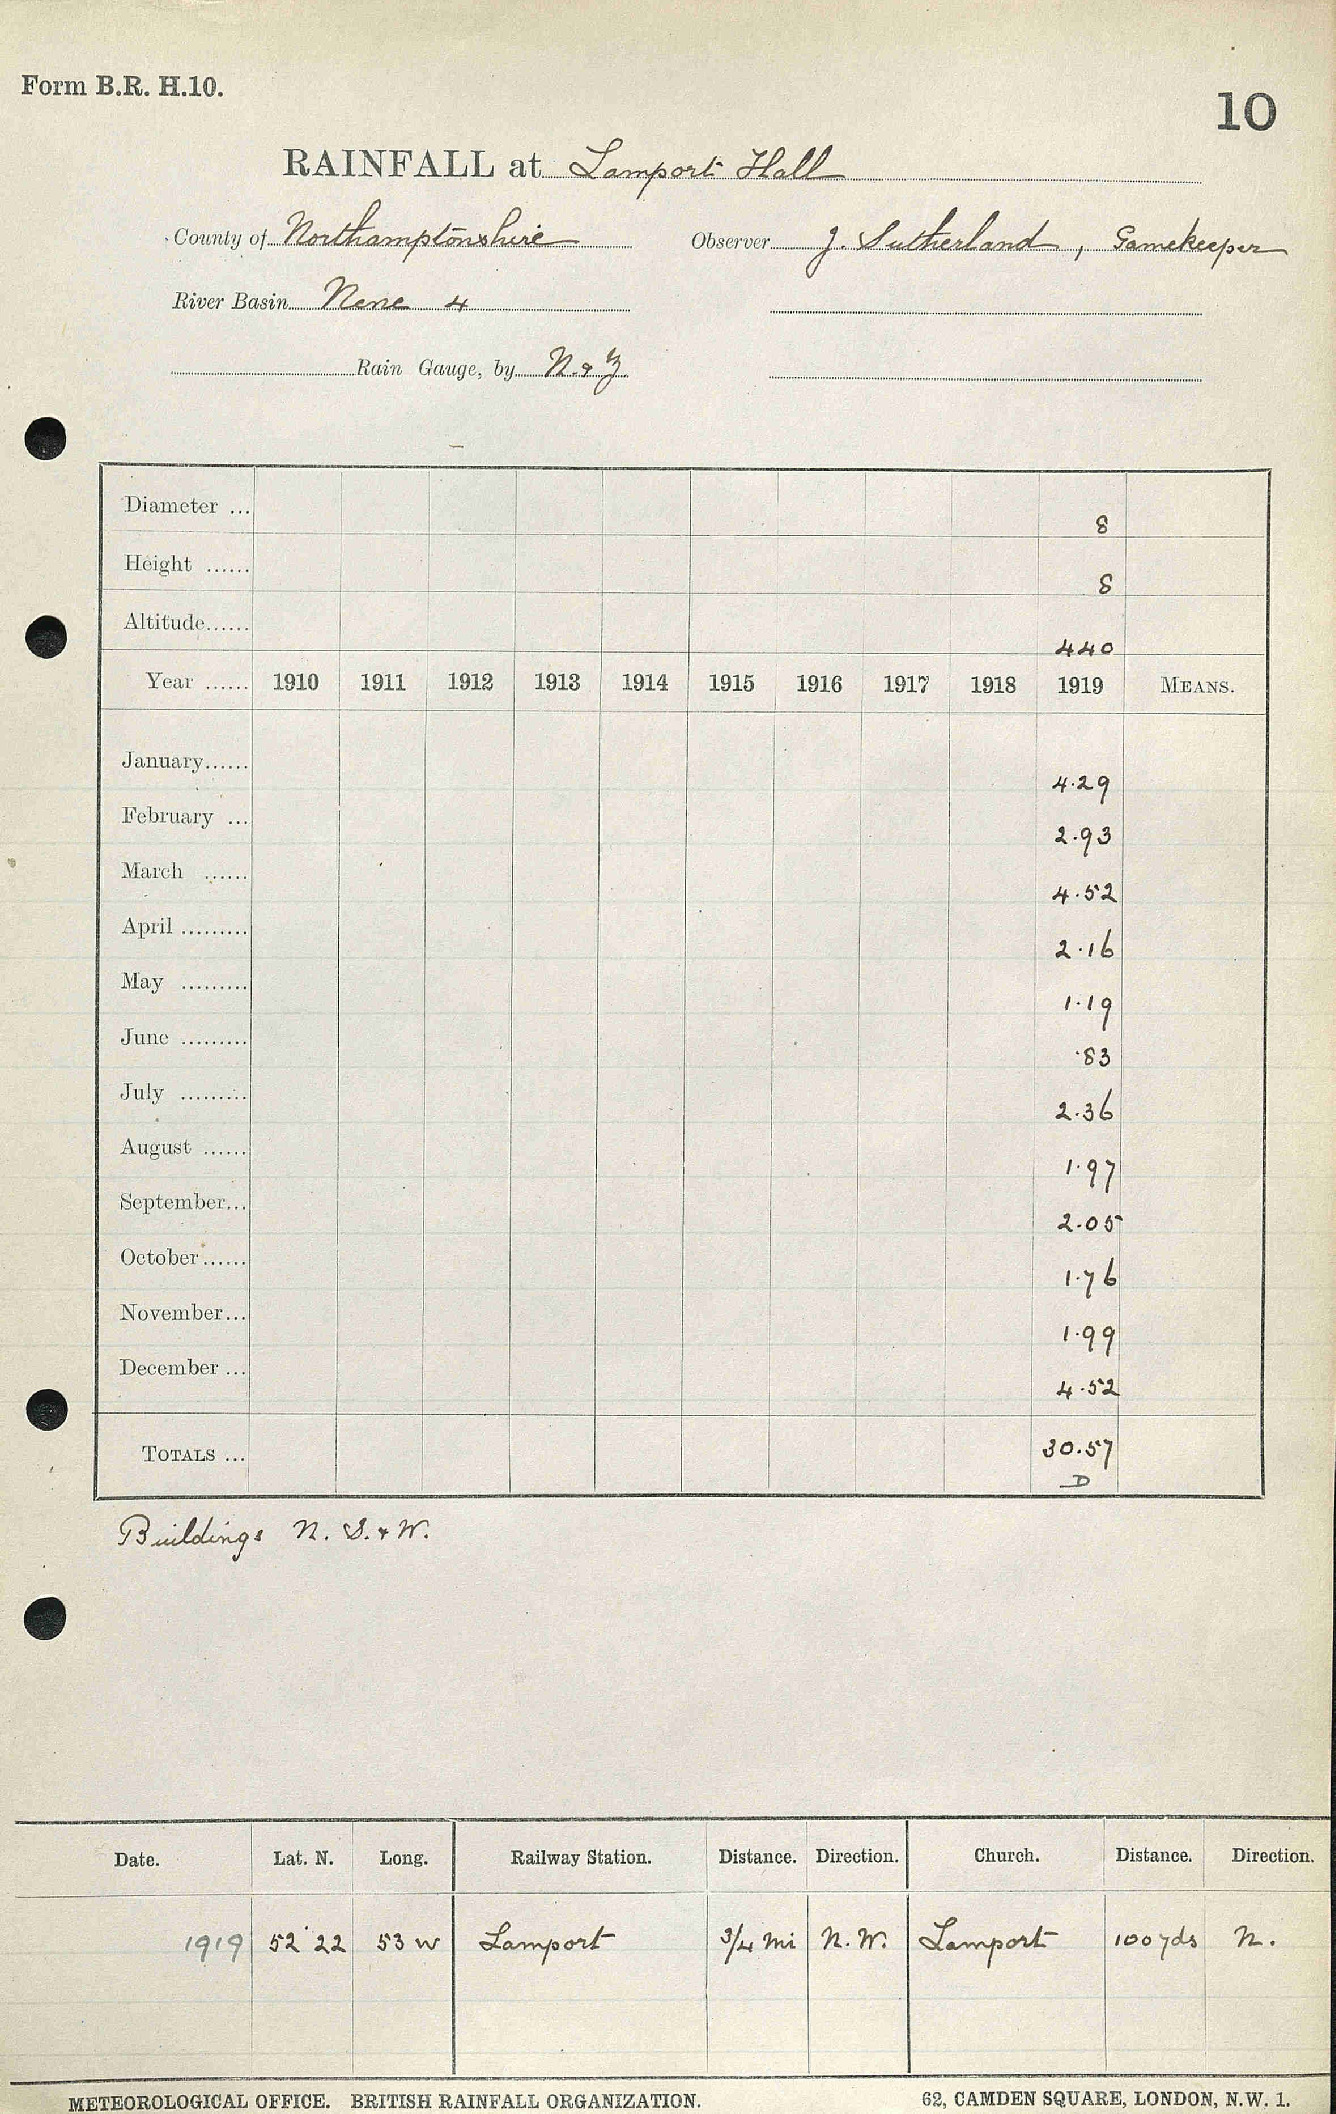 Form B.R. H.10.
10
RAINFALL at Lamport Hall
County of Northamptonshire Observer J. Sutherland, Gamekeeper
River Basin Nene 4
Rain Gauge, by N. & Z.
Diameter ... 8
Height ...... 8
Altitude...... 440
Year ...... 1910 1911 1912 1913 1914 1915 1916 1917 1918 1919 MEANS.
January...... 4.29
February ... 2.93
March ...... 4.52
April ......... 2.16
May ......... 1.19
June ......... .83
July ......... 2.36
August ...... 1.97
September... 2.05
October...... 1.76
November... 1.99
December ... 4.52
TOTALS ... 30.57
D
Buildings N. S. & W.
Date. Lat. N. Long. Railway Station. Distance. Direction. Church. Distance. Direction.
1919 52 22 53 W Lamport 3/4 mi N.W. Lamport 100 yds N.
METEOROLOGICAL OFFICE. BRITISH RAINFALL ORGANIZATION. 62, CAMDEN SQUARE, LONDON, N.W. 1.